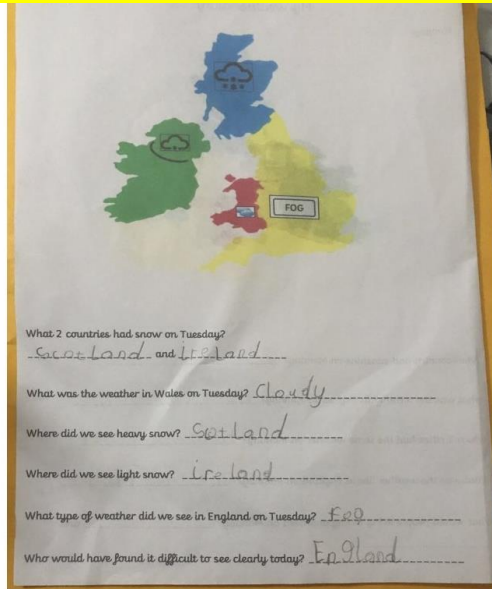 FOG
What 2 countries had snow on Tuesday?
Scotland and ireland
What was the weather in Wales on Tuesday? Cloudy
Where did we see heavy snow? Scotland
Where did we see light snow? ireland
What type of weather did we see in England on Tuesday? Fog
Who would have found it difficult to see clearly today? England